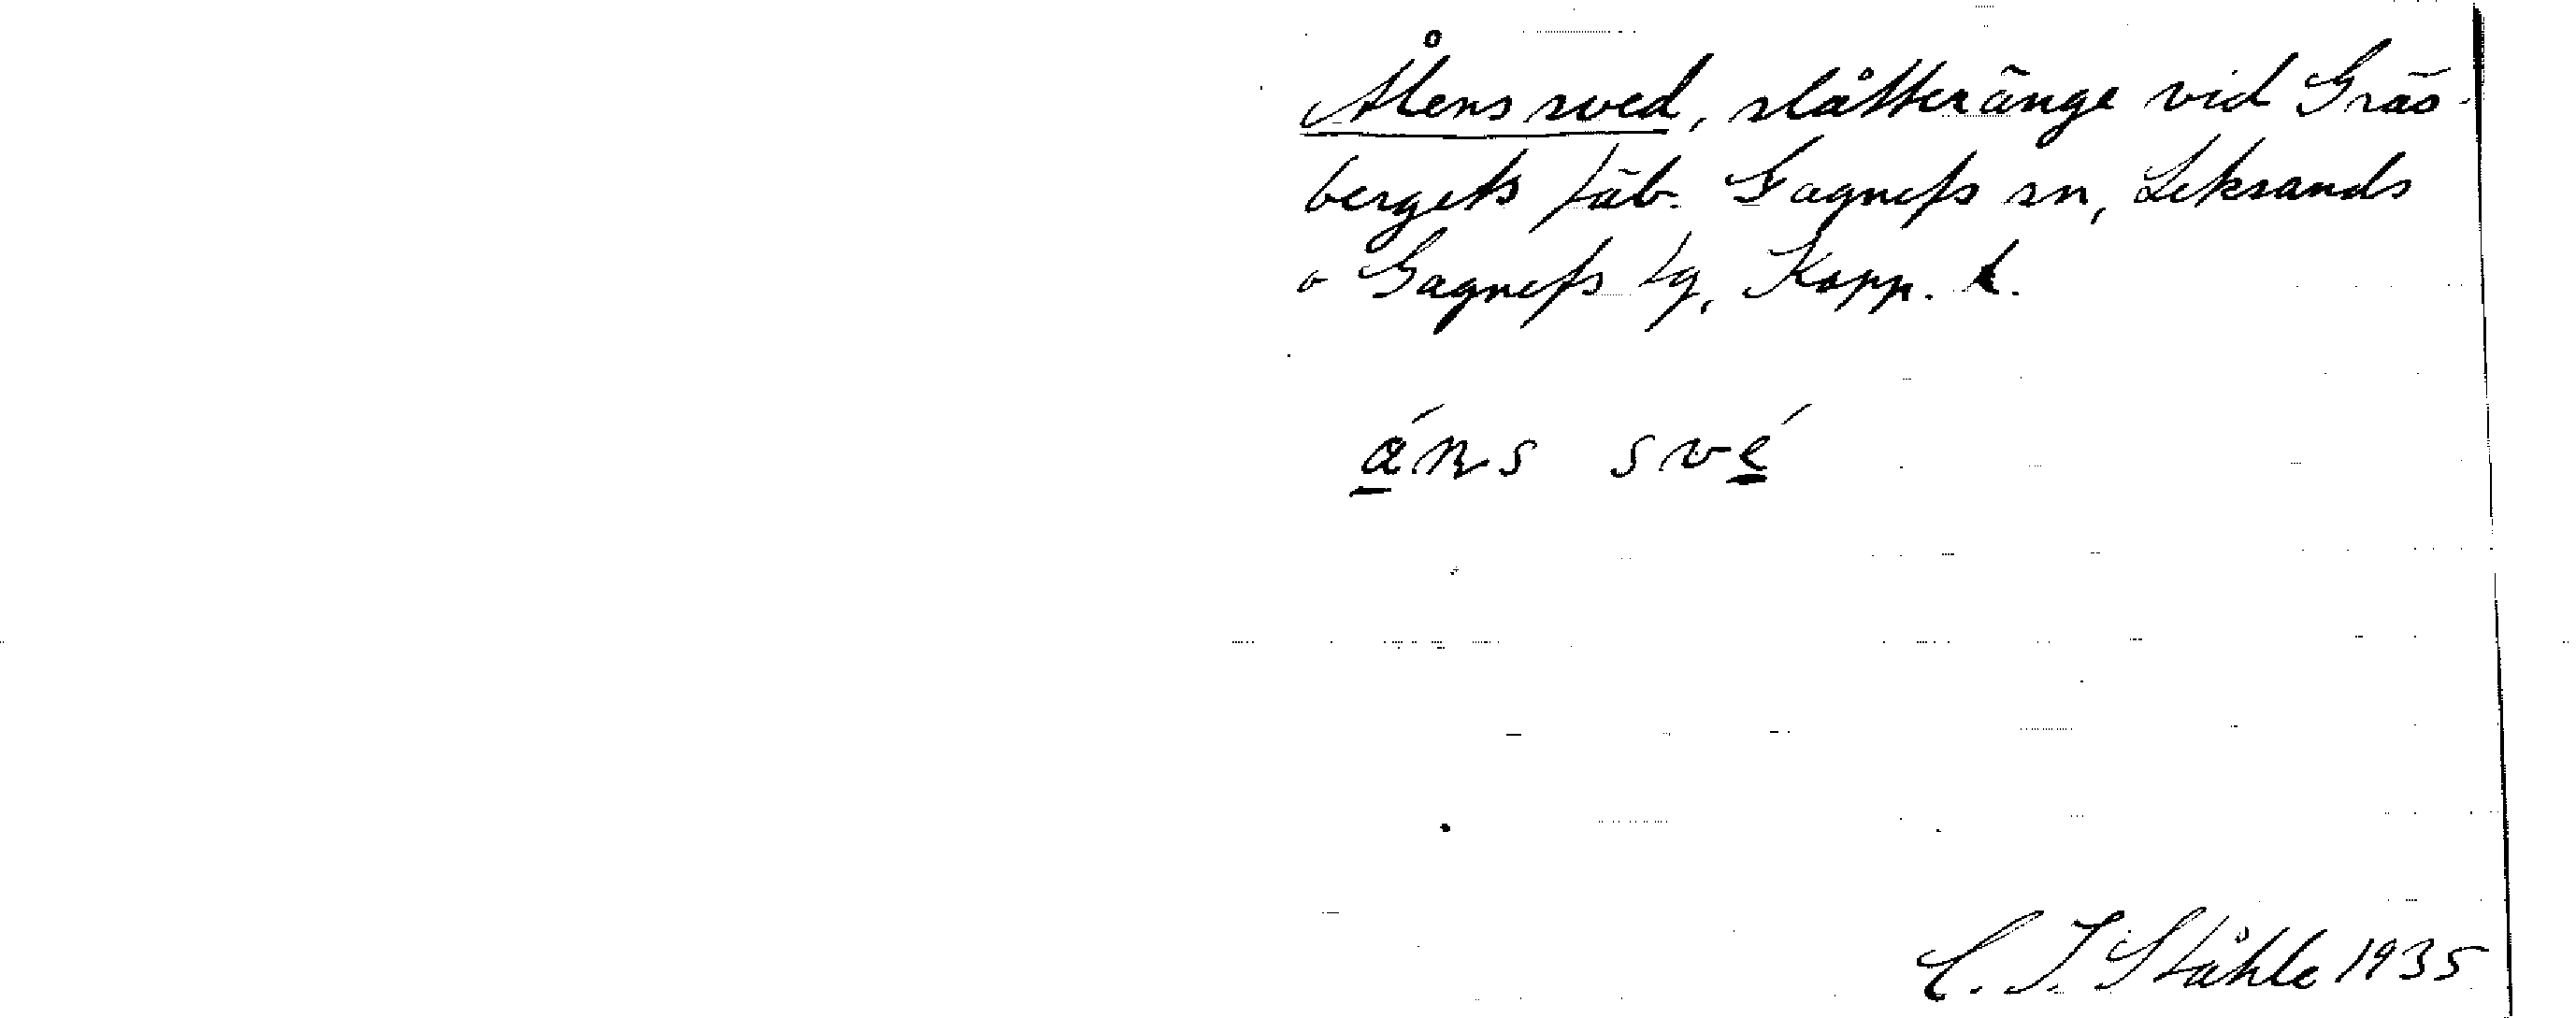 Ålens sved, slåtteränge vid Gräs-
bergets fäb. Gagnefs sn, Leksands
o Gagnefs tg, Kopp. l.
áns své
C. I. Ståhle 1935